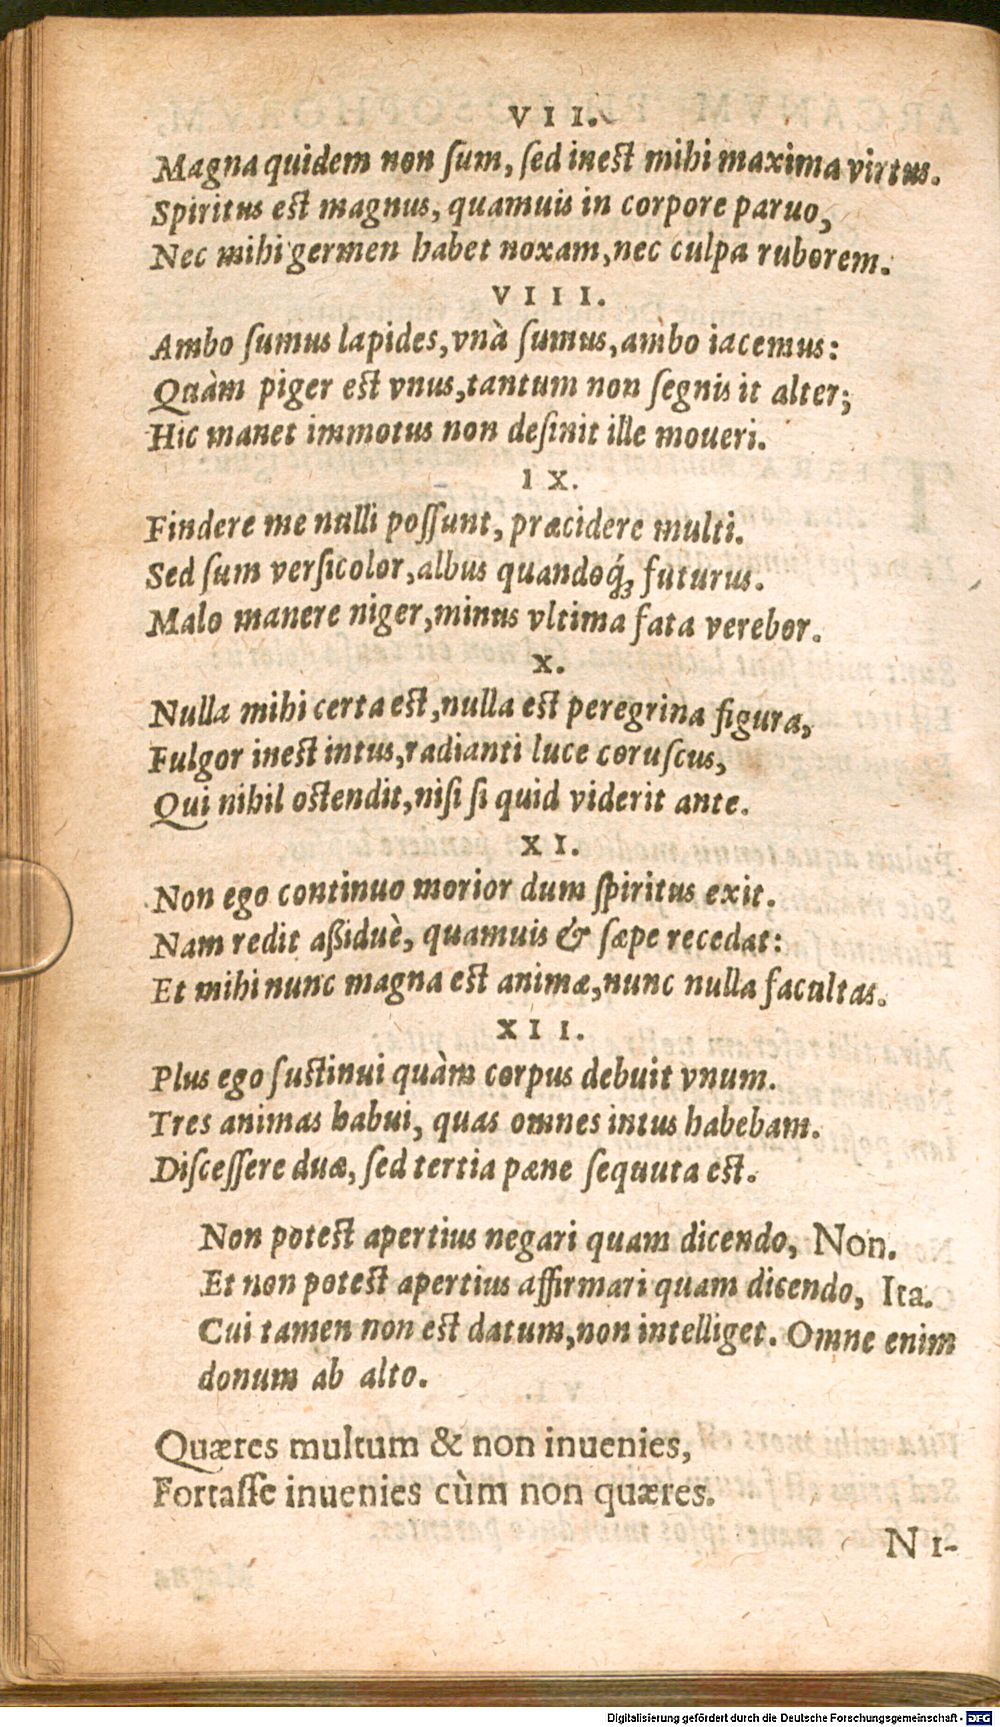 VII.
Magna quidem non ſum, ſed ineſt mihi maxima virtus.
Spiritus eſt magnus, quamuis in corpore paruo,
Nec mihi germen habet noxam, nec culpa ruborem.
VIII.
Ambo ſumus lapides, vnà ſumus, ambo iacemus:
Quàm piger eſt vnus, tantum non ſegnis it alter;
Hic manet immotus non deſinit ille moueri.
IX.
Findere me nulli poſſunt, præcidere multi.
Sed ſum verſicolor, albus quandoq́; futurus.
Malo manere niger, minus vltima fata verebor.
X.
Nulla mihi certa eſt, nulla eſt peregrina figura,
Fulgor ineſt intus, radianti luce coruſcus,
Qui nihil oſtendit, niſi ſi quid viderit ante.
XI.
Non ego continuo morior dum ſpiritus exit.
Nam redit aßiduè, quamuis & ſæpe recedat:
Et mihi nunc magna eſt animæ, nunc nulla facultas.
XII.
Plus ego ſuſtinui quàm corpus debuit vnum.
Tres animas habui, quas omnes intus habebam.
Diſceſſere duæ, ſed tertia pæne ſequuta eſt.
Non poteſt apertius negari quam dicendo, Non.
Et non poteſt apertius affirmari quam dicendo, Ita.
Cui tamen non eſt datum, non intelliget. Omne enim
donum ab alto.
Quæres multum & non inuenies,
Fortaſſe inuenies cùm non quæres.
NI-
Digitalisierung gefördert durch die Deutsche Forschungsgemeinschaft - DFG